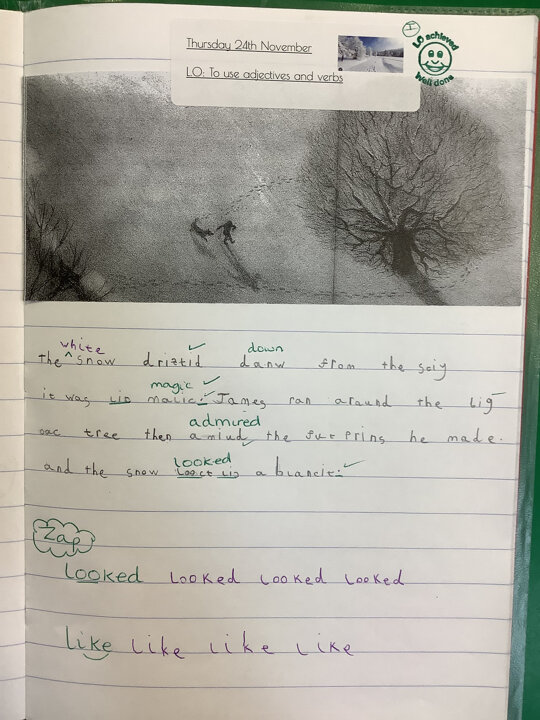 Thursday 24th November
LO: To use adjectives and verbs
I
LO achieved
Well done
white
the ^ snow driftid danw from the sciy
down
magic
it was lic malic. James ran around the big
admired
oac tree then amiud the futprins he made.
looked
and the snow looct lic a blancit.
Zap
looked looked looked looked
like like like like